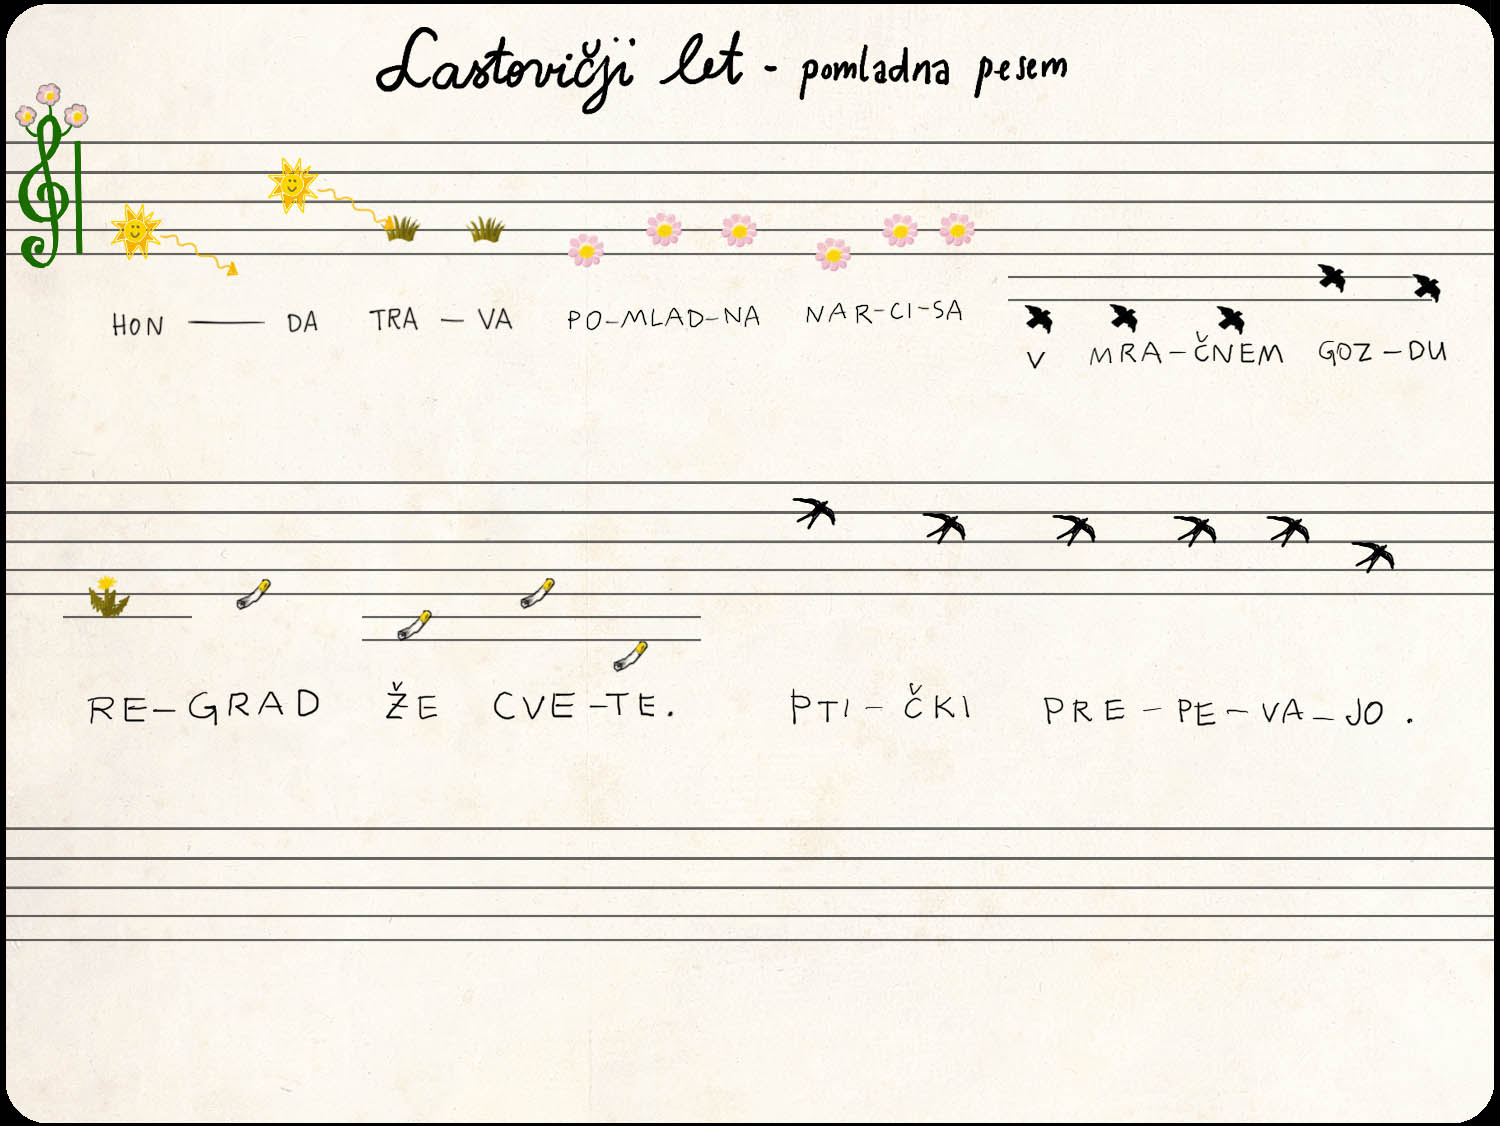 Lastovičji let - pomladna pesem
HON — DA TRA – VA PO-MLAD-NA NAR-CI-SA V MRA-ČNEM GOZ-DU
RE-GRAD ŽE CVE-TE. PTI-ČKI PRE-PE-VA-JO.